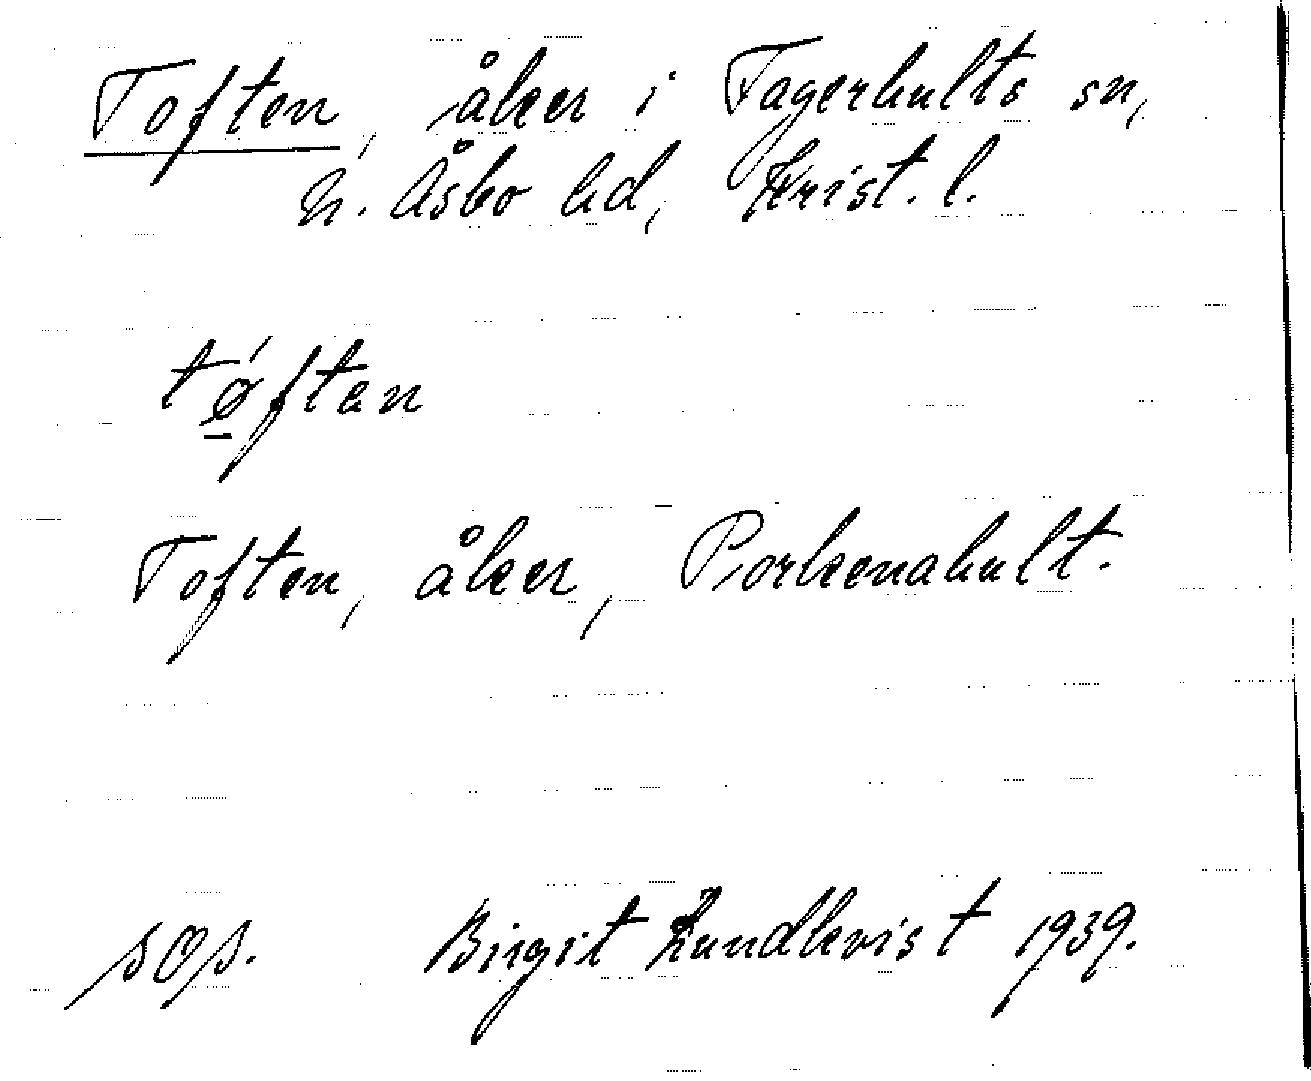 Toften, åker i Fagerhults sn,
N. Åsbo hd, Krist. l.
tǿ̲ften
Toften, åker, Porkenahult.
SOS. Birgit Lundkvist 1939.